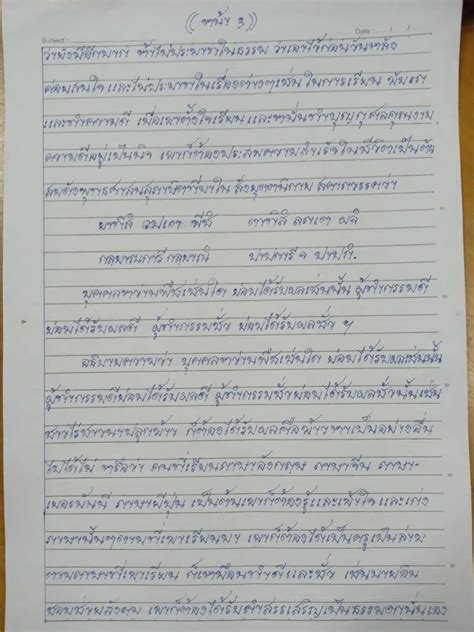 ((หน้า 3))
Subject : Date :
ว่ายังมีดีมาก ถ้าไม่ประมาทในธรรม ว่าเลาใช้
สนใจ และไม่ประมาทในเรื่องต่างๆเช่น ในการเรียน
และทำความดี เมื่อเขาตั้งใจเรียน และหมั่นทำบุญกุศล
ความดีอยู่เป็นนิจ เขาก็ต้องประสบความสำเร็จในชีวิตเป็นต้น
สมดังพุทธศาสนสุภาษิตที่มาใน สังยุตตนิกาย สคาถวรรคว่า
ยาทิสํ วปเต พีชํ ตาทิสํ ลภเต ผลํ
กลฺยาณการี กลฺยาณํ ปาปการี จ ปาปกํ.
บุคคลหว่านพืชเช่นใด ย่อมได้รับผลเช่นนั้น ผู้ทำกรรมดี
ย่อมได้รับผลดี ผู้ทำกรรมชั่ว ย่อมได้รับผลชั่ว ฯ
อธิบายความว่า บุคคลหว่านพืชเช่นใด ย่อมได้รับผลเช่นนั้น
ผู้ทำกรรมดีย่อมได้รับผลดี ผู้ทำกรรมชั่วย่อมได้รับผลชั่วนั้นเช่น
ชาวไร่ชาวนาปลูกข้าว ก็ต้องได้รับผลคือข้าวหาเป็นอย่างอื่น
ไปได้ไม่ หรือว่า คนที่เรียนภาษาอังกฤษ ภาษาจีน ภาษา-
เยอรมันนี ภาษาญี่ปุ่น เป็นต้นเขาก็ต้องรู้และเข้าใจ และเก่ง
ภาษานั้นๆตามที่เขาเรียนมา เขาก็ต้องได้เป็นครูเป็นล่าม
ตามภาษาที่เขาเรียน ก็เหมือนทำดีและชั่ว เช่นนายจิน
ชอบช่วยสังคม เขาก็ต้องได้รับคำสรรเสริญเป็นธรรมดานั่นเอง